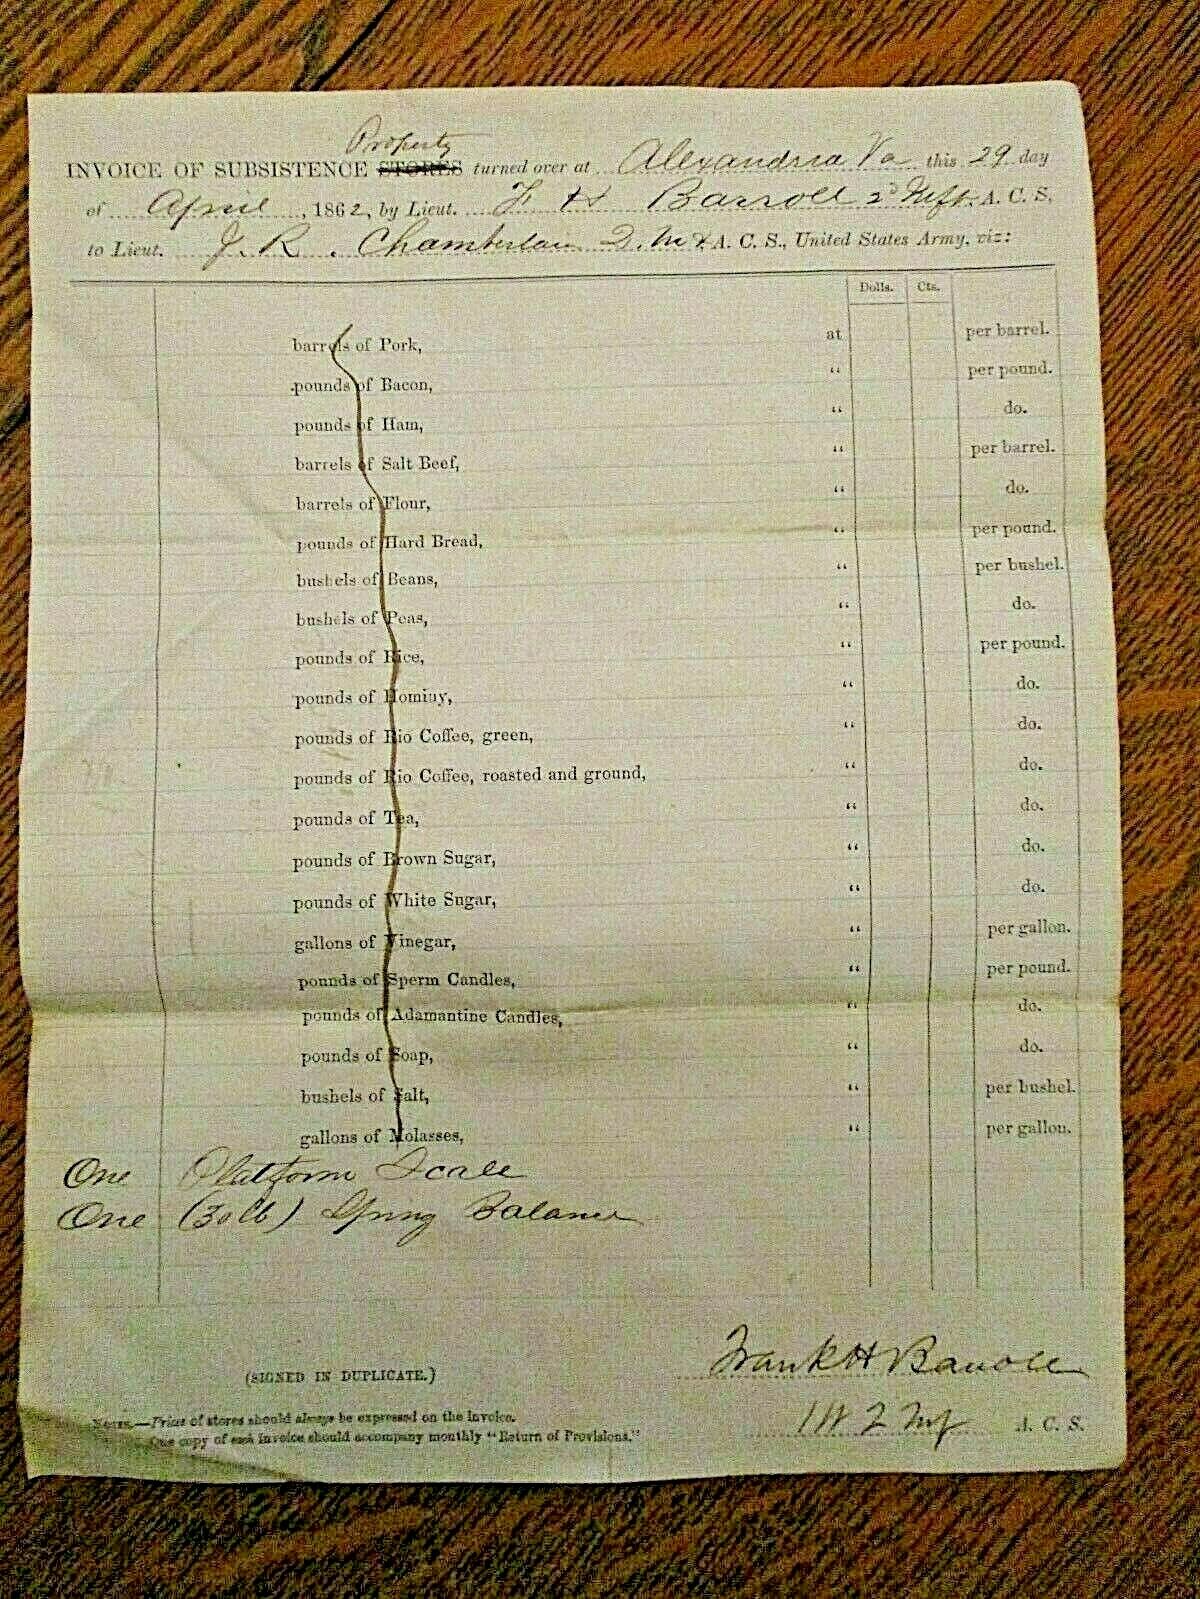 Property
INVOICE OF SUBSISTENCE STORES turned over at Alexandria Va this 29 day
of April, 1862, by Lieut. F H Barroll 2d Inft. A. C. S.
to Lieut. J. R. Chamberlain Q. M & A. C. S., United States Army, viz:
Dolls. Cts.
barrels of Pork, at per barrel.
pounds of Bacon, " per pound.
pounds of Ham, " do.
barrels of Salt Beef, " per barrel.
barrels of Flour, " do.
pounds of Hard Bread, " per pound.
bushels of Beans, " per bushel.
bushels of Peas, " do.
pounds of Rice, " per pound.
pounds of Hominy, " do.
pounds of Rio Coffee, green, " do.
pounds of Rio Coffee, roasted and ground, " do.
pounds of Tea, " do.
pounds of Brown Sugar, " do.
pounds of White Sugar, " do.
gallons of Vinegar, " per gallon.
pounds of Sperm Candles, " per pound.
pounds of Adamantine Candles, " do.
pounds of Soap, " do.
bushels of Salt, " per bushel.
gallons of Molasses, " per gallon.
One Platform Scale
One (30 lb) Spring Balance
Frank H Barroll
(SIGNED IN DUPLICATE.)
2 Inf A. C. S.
NOTES.—Price of stores should always be expressed on the Invoice.
One copy of each Invoice should accompany monthly "Return of Provisions."